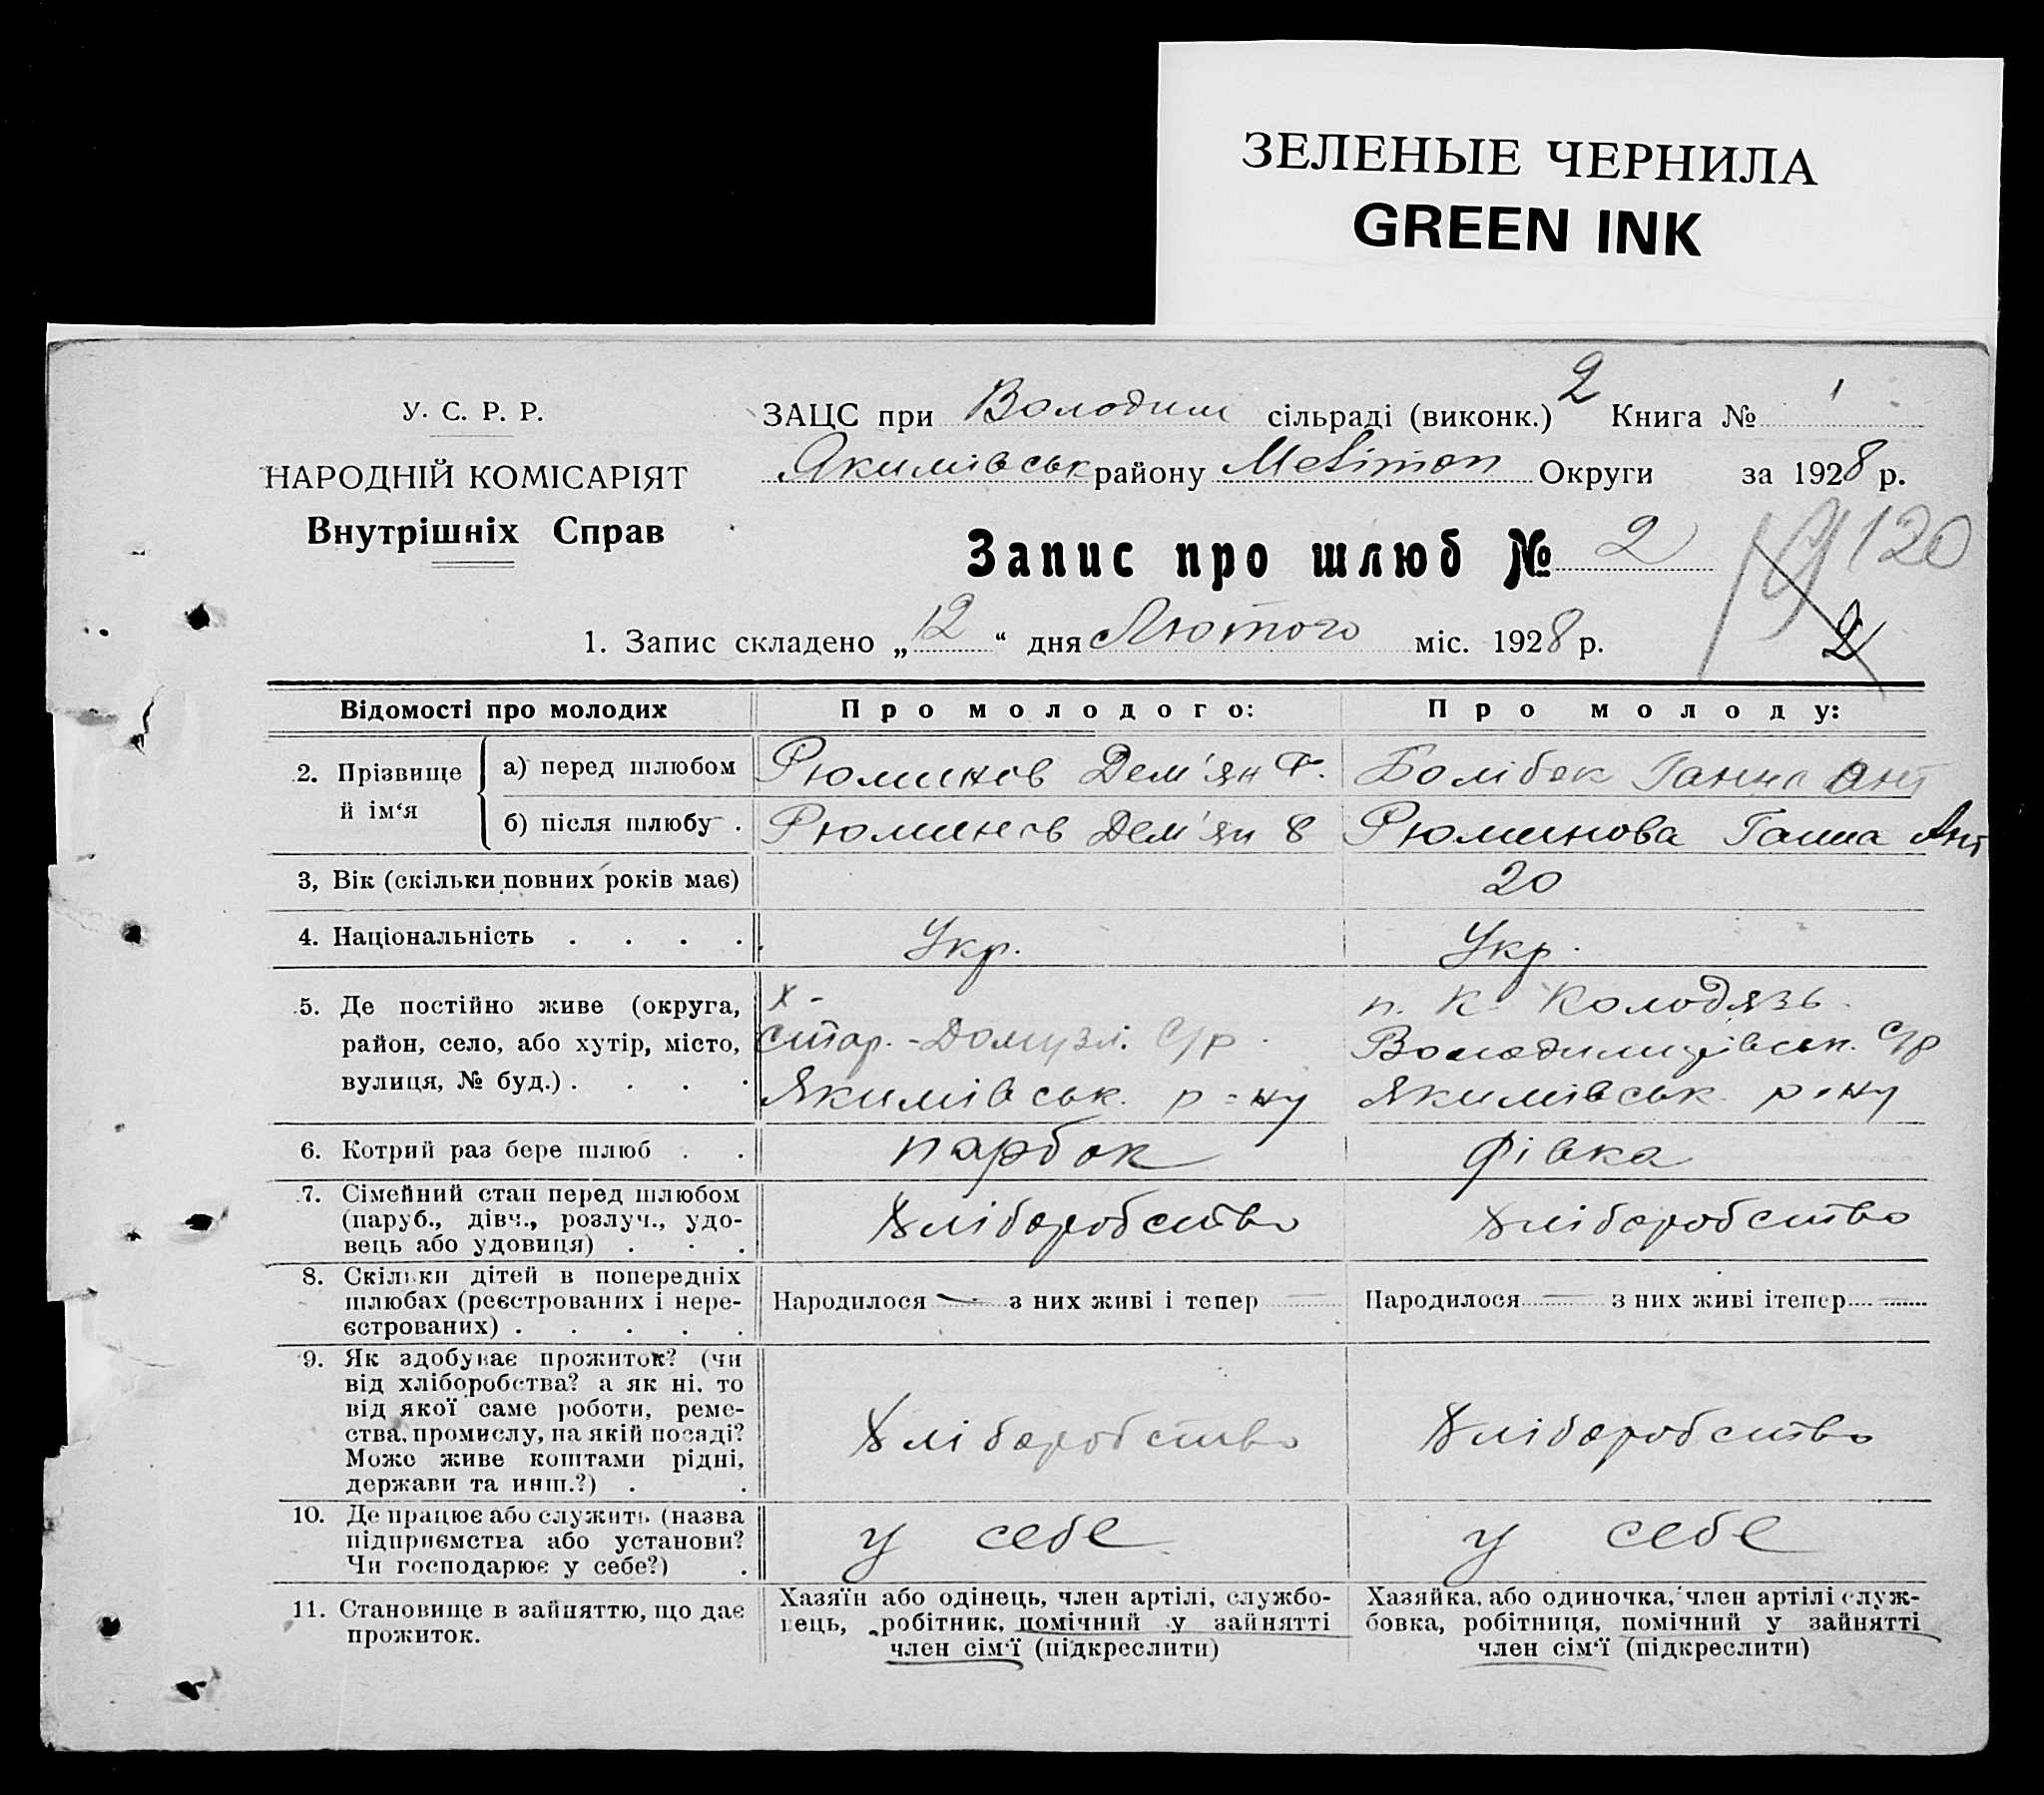 ЗЕЛЕНЫЕ ЧЕРНИЛА
GREEN INK
У. С. Р. Р.
НАРОДНІЙ КОМІСАРІЯТ
Внутрішніх Справ
2
ЗАЦС при Володим сільраді (виконк.) Книга № 1
Якимівськ району Меліт Округи за 1928 р.
Запис про шлюб № 2
120
2
1. Запис складено „12“ дня Лютого міс. 1928 р.
Відомості про молодих Про молодого: Про молоду:
2. Прізвище й ім‘я
а) перед шлюбом Рюминов Дем'ян Ф. Болібок Ганна Ант
б) після шлюбу . Рюминов Дем'ян Рюминова Ганна Ант
3, Вік (скільки повних років має) 20
4. Національність . . . . Укр. Укр.
5. Де постійно живе (округа, район, село, або хутір, місто, вулиця, № буд.) . . . .
х -
Стар.-Домузл. С/р
Якимівськ. р-ну
п. К Колодязь
Володимирівськ. С/р
Якимівськ р-ну
6. Котрий раз бере шлюб . . парбок дівка
7. Сімейний стан перед шлюбом
(паруб., дівч., розлуч., удо-
вець або удовиця) . . .
Хліборобство Хліборобство
8. Скільки дітей в попередніх
шлюбах (реєстрованих і нере-
єстрованих) . . . . .
Народилося — з них живі і тепер —
Народилося — з них живі ітепер —
9. Як здобуває прожиток? (чи
від хліборобства? а як ні, то
від якої саме роботи, реме-
ства, промислу, на якій посаді?
Може живе коштами рідні,
держави та инш.?) . .
Хліборобство Хліборобство
10. Де працює або служить (назва
підприємства або установи?
Чи господарює у себе?) .
у себе у себе
11. Становище в зайняттю, що дає
прожиток.
Хазяїн або одінець, член артілі, службо-
вець, робітник, помічний у зайнятті
член сім‘ї (підкреслити)
Хазяйка, або одиночка, член артілі служ-
бовка, робітниця, помічний у зайнятті
член сім‘ї (підкреслити)